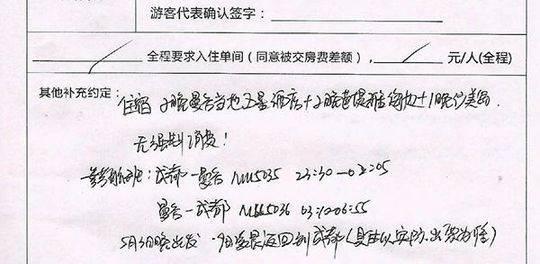 游客代表确认签字：
全程要求入住单间（同意被交房费差额），元/人(全程)
其他补充约定：住宿 2晚曼谷当地五星酒店+2晚芭提雅
无强制消费！
航班：成都—曼谷 MU5035 23:30—02:05
曼谷—成都 MU5036 03:10 06:55
5月3日晚出发 返回到成都（具体以实际出票为准）